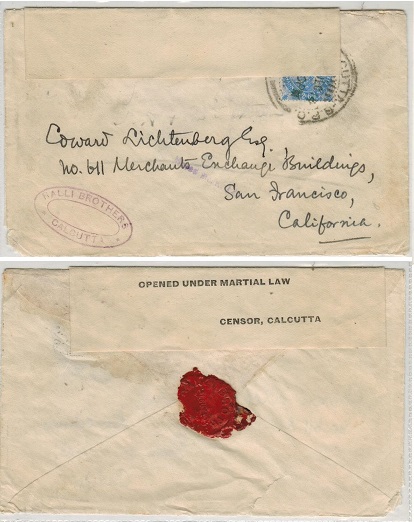 CUTTA G.P.O.
Coward Lichtenberg Esq.
No. 611 Merchants Exchange Buildings,
San Francisco,
California.
RALLI BROTHERS
CALCUTTA
OPENED UNDER MARTIAL LAW
CENSOR, CALCUTTA